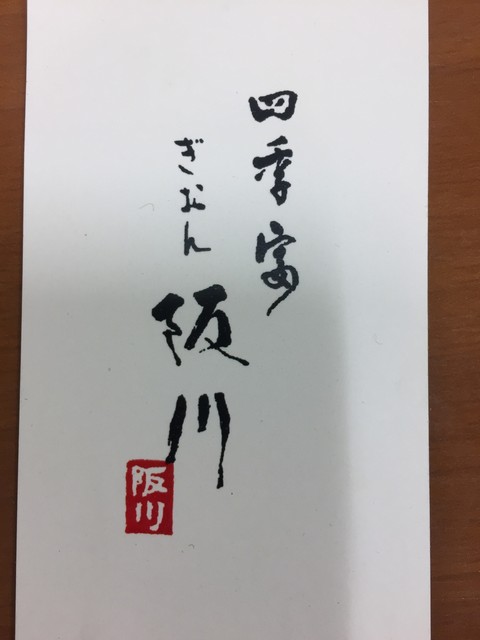 四季富
ぎおん
阪川
阪川